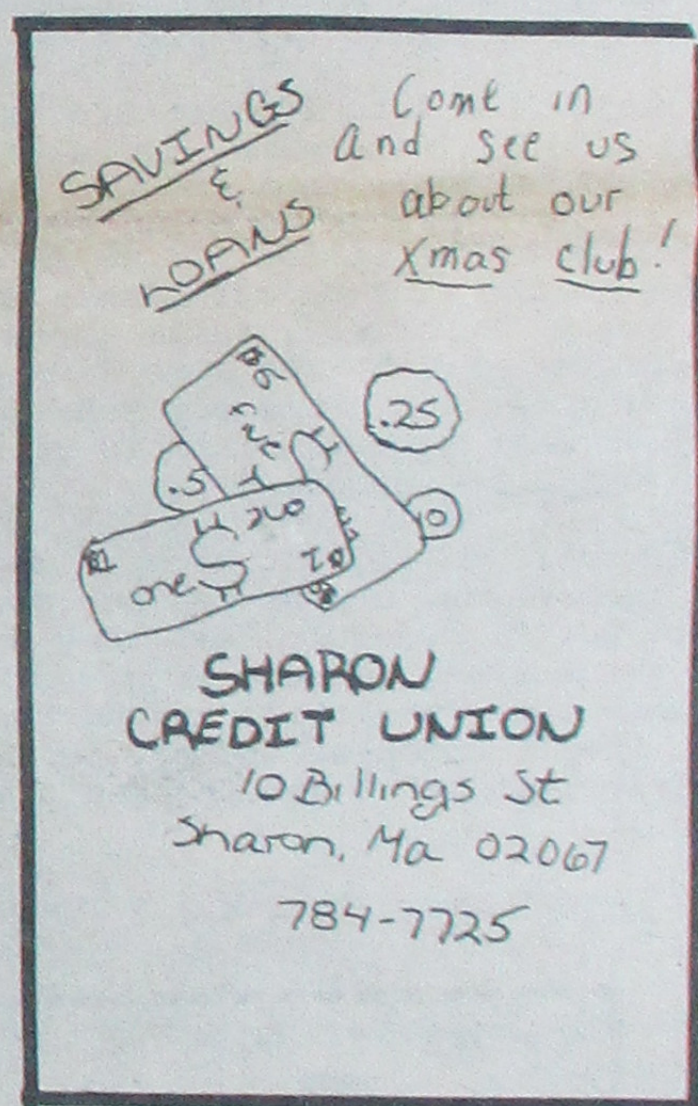 SAVINGS
&
LOANS
Come in
and see us
about our
Xmas club!
$5
five
.25
.5
10
one
$
one
SHARON
CREDIT UNION
10 Billings St
Sharon, Ma 02067
784-7725